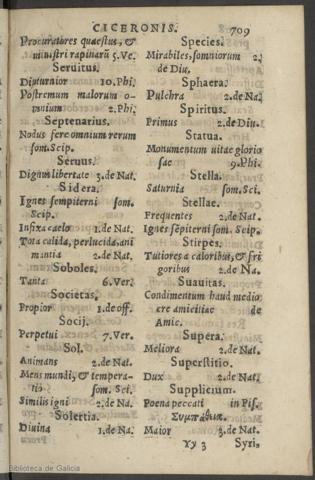 CICERONIS. 709
Procuratores quaestus, &
ministri rapinarũ 5. Ve.
Seruitus.
Diuturnior 10. Phi.
Postremum malorum o-
mnium 2. Phi.
Septenarius.
Nodus fere omnium rerum
som. Scip.
Seruus.
Dignus libertate 3. de Nat.
Sidera.
Ignes sempiterni som.
Scip.
Infixa caelo 1. de Nat.
Tota calida, perlucida, ani
mantia 2. de Nat.
Soboles.
Tanta 6. Ver.
Societas.
Propior 1. de off.
Socij.
Perpetui 7. Ver.
Sol.
Animans 2. de Nat.
Mens mundi, & tempera-
tio som. Sci.
Similis igni 2. de Na.
Solertia.
Diuina 1. de Nat.
Species.
Mirabiles, somniorum 2.
de Diu.
Sphaera.
Pulchra 2. de Na.
Spiritus.
Primus 2. de Diu.
Statua.
Monumentum uitae glorio
sae 9. Phi.
Stella.
Saturnia som. Sci.
Stellae.
Frequentes 2. de Nat.
Ignes sẽpiterni som. Scip.
Stirpes.
Tutiores a caloribus, & fri
goribus 2. de Na.
Suauitas.
Condimentum haud medio
cre amicitiae de
Amic.
Supera.
Meliora 2. de Nat.
Superstitio.
Dux 2. de Nat.
Supplicium.
Poena peccati in Pis.
Maior 3. de Nat.
Yy 3 Syri,
Biblioteca de Galicia